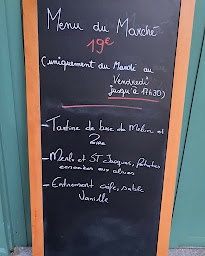 Menu du Marché
19€
(uniquement du Mardi au
Vendredi
Jusqu'à 17h30)
- Tartine de brie de Melun et
Poire
- Merlu et ST Jacques, Patates
écrasées aux olives
- Entremet café, sablé
Vanille